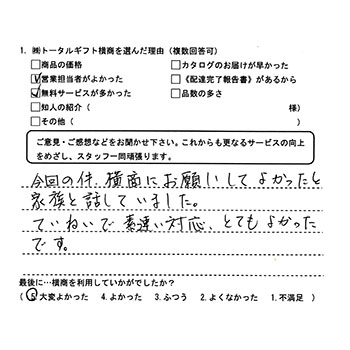 1. ㈱トータルギフト横商を選んだ理由（複数回答可）
□商品の価格 □カタログのお届けが早かった
☑営業担当者がよかった □《配達完了報告書》があるから
☑無料サービスが多かった □品数の多さ
□知人の紹介（ 様）
□その他（ ）
ご意見・ご感想などをお聞かせ下さい。これからも更なるサービスの向上
をめざし、スタッフ一同頑張ります。
今回の件、横商にお願いしてよかったと
家族と話していました。
ていねいで素速い対応、とてもよかった
です。
最後に…横商を利用していかがでしたか？
（⑤大変よかった 4.よかった 3.ふつう 2.よくなかった 1.不満足）